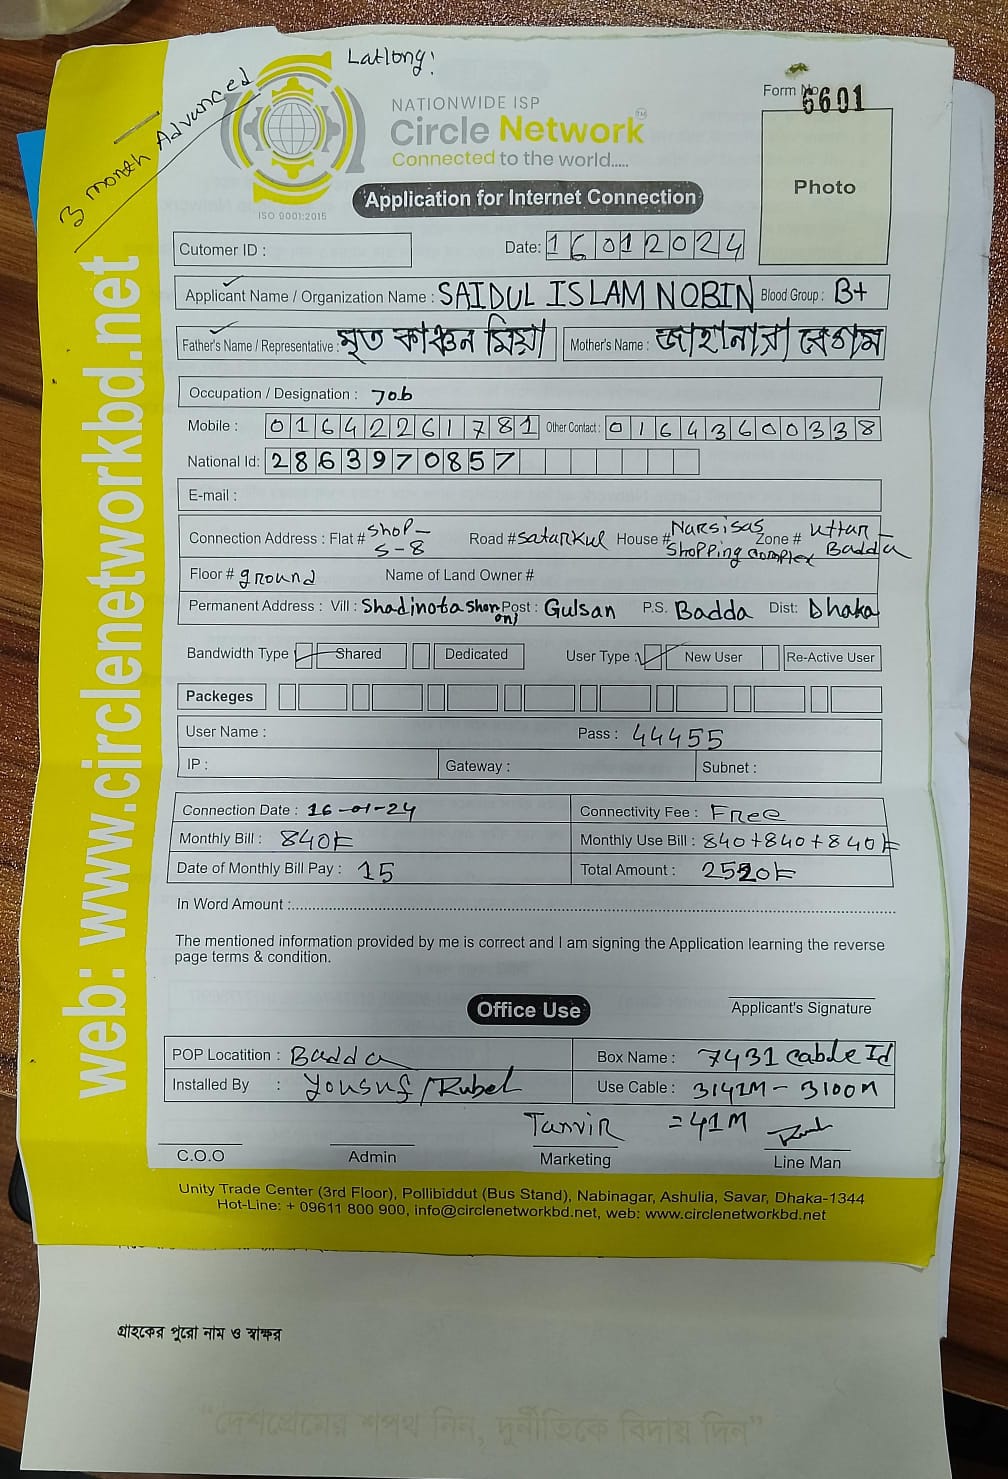 Latlong:
3 month Advanced
Form No
6601
NATIONWIDE ISP
Circle Network™
Connected to the world.....
ISO 9001:2015
Photo
Application for Internet Connection
Cutomer ID :
Date: 16012024
Applicant Name / Organization Name : SAIDUL ISLAM NOBIN Blood Group : B+
Father's Name / Representative : মৃত কাঞ্চন মিয়া Mother's Name : জাহানারা বেগম
Occupation / Designation : Job
Mobile : 01642261781 Other Contact : 01643600338
National Id: 2863970857
E-mail :
Connection Address : Flat # Shop - S-8 Road # Satarkul House # Narsisas Shopping complex Zone # Uttar - Badda
Floor # ground Name of Land Owner #
Permanent Address : Vill : Shadinota Post : Gulsan P.S. Badda Dist: Dhaka
Bandwidth Type : Shared Dedicated User Type : New User Re-Active User
Packeges
User Name : Pass : 44455
IP : Gateway : Subnet :
Connection Date : 16-01-24 Connectivity Fee : Free
Monthly Bill : 840৳ Monthly Use Bill : 840+840+840৳
Date of Monthly Bill Pay : 15 Total Amount : 2520৳
In Word Amount :
The mentioned information provided by me is correct and I am signing the Application learning the reverse
page terms & condition.
Applicant's Signature
Office Use
POP Locatition : Badda Box Name : 7431 Cable Id
Installed By : Yousuf/Rubel Use Cable : 3141M - 3100M
Tanvir =41M
C.O.O Admin Marketing Line Man
Unity Trade Center (3rd Floor), Pollibiddut (Bus Stand), Nabinagar, Ashulia, Savar, Dhaka-1344
Hot-Line: + 09611 800 900, info@circlenetworkbd.net, web: www.circlenetworkbd.net
web: www.circlenetworkbd.net
গ্রাহকের পুরো নাম ও স্বাক্ষর
“দেশপ্রেমের শপথ নিন, দুর্নীতিকে বিদায় দিন”